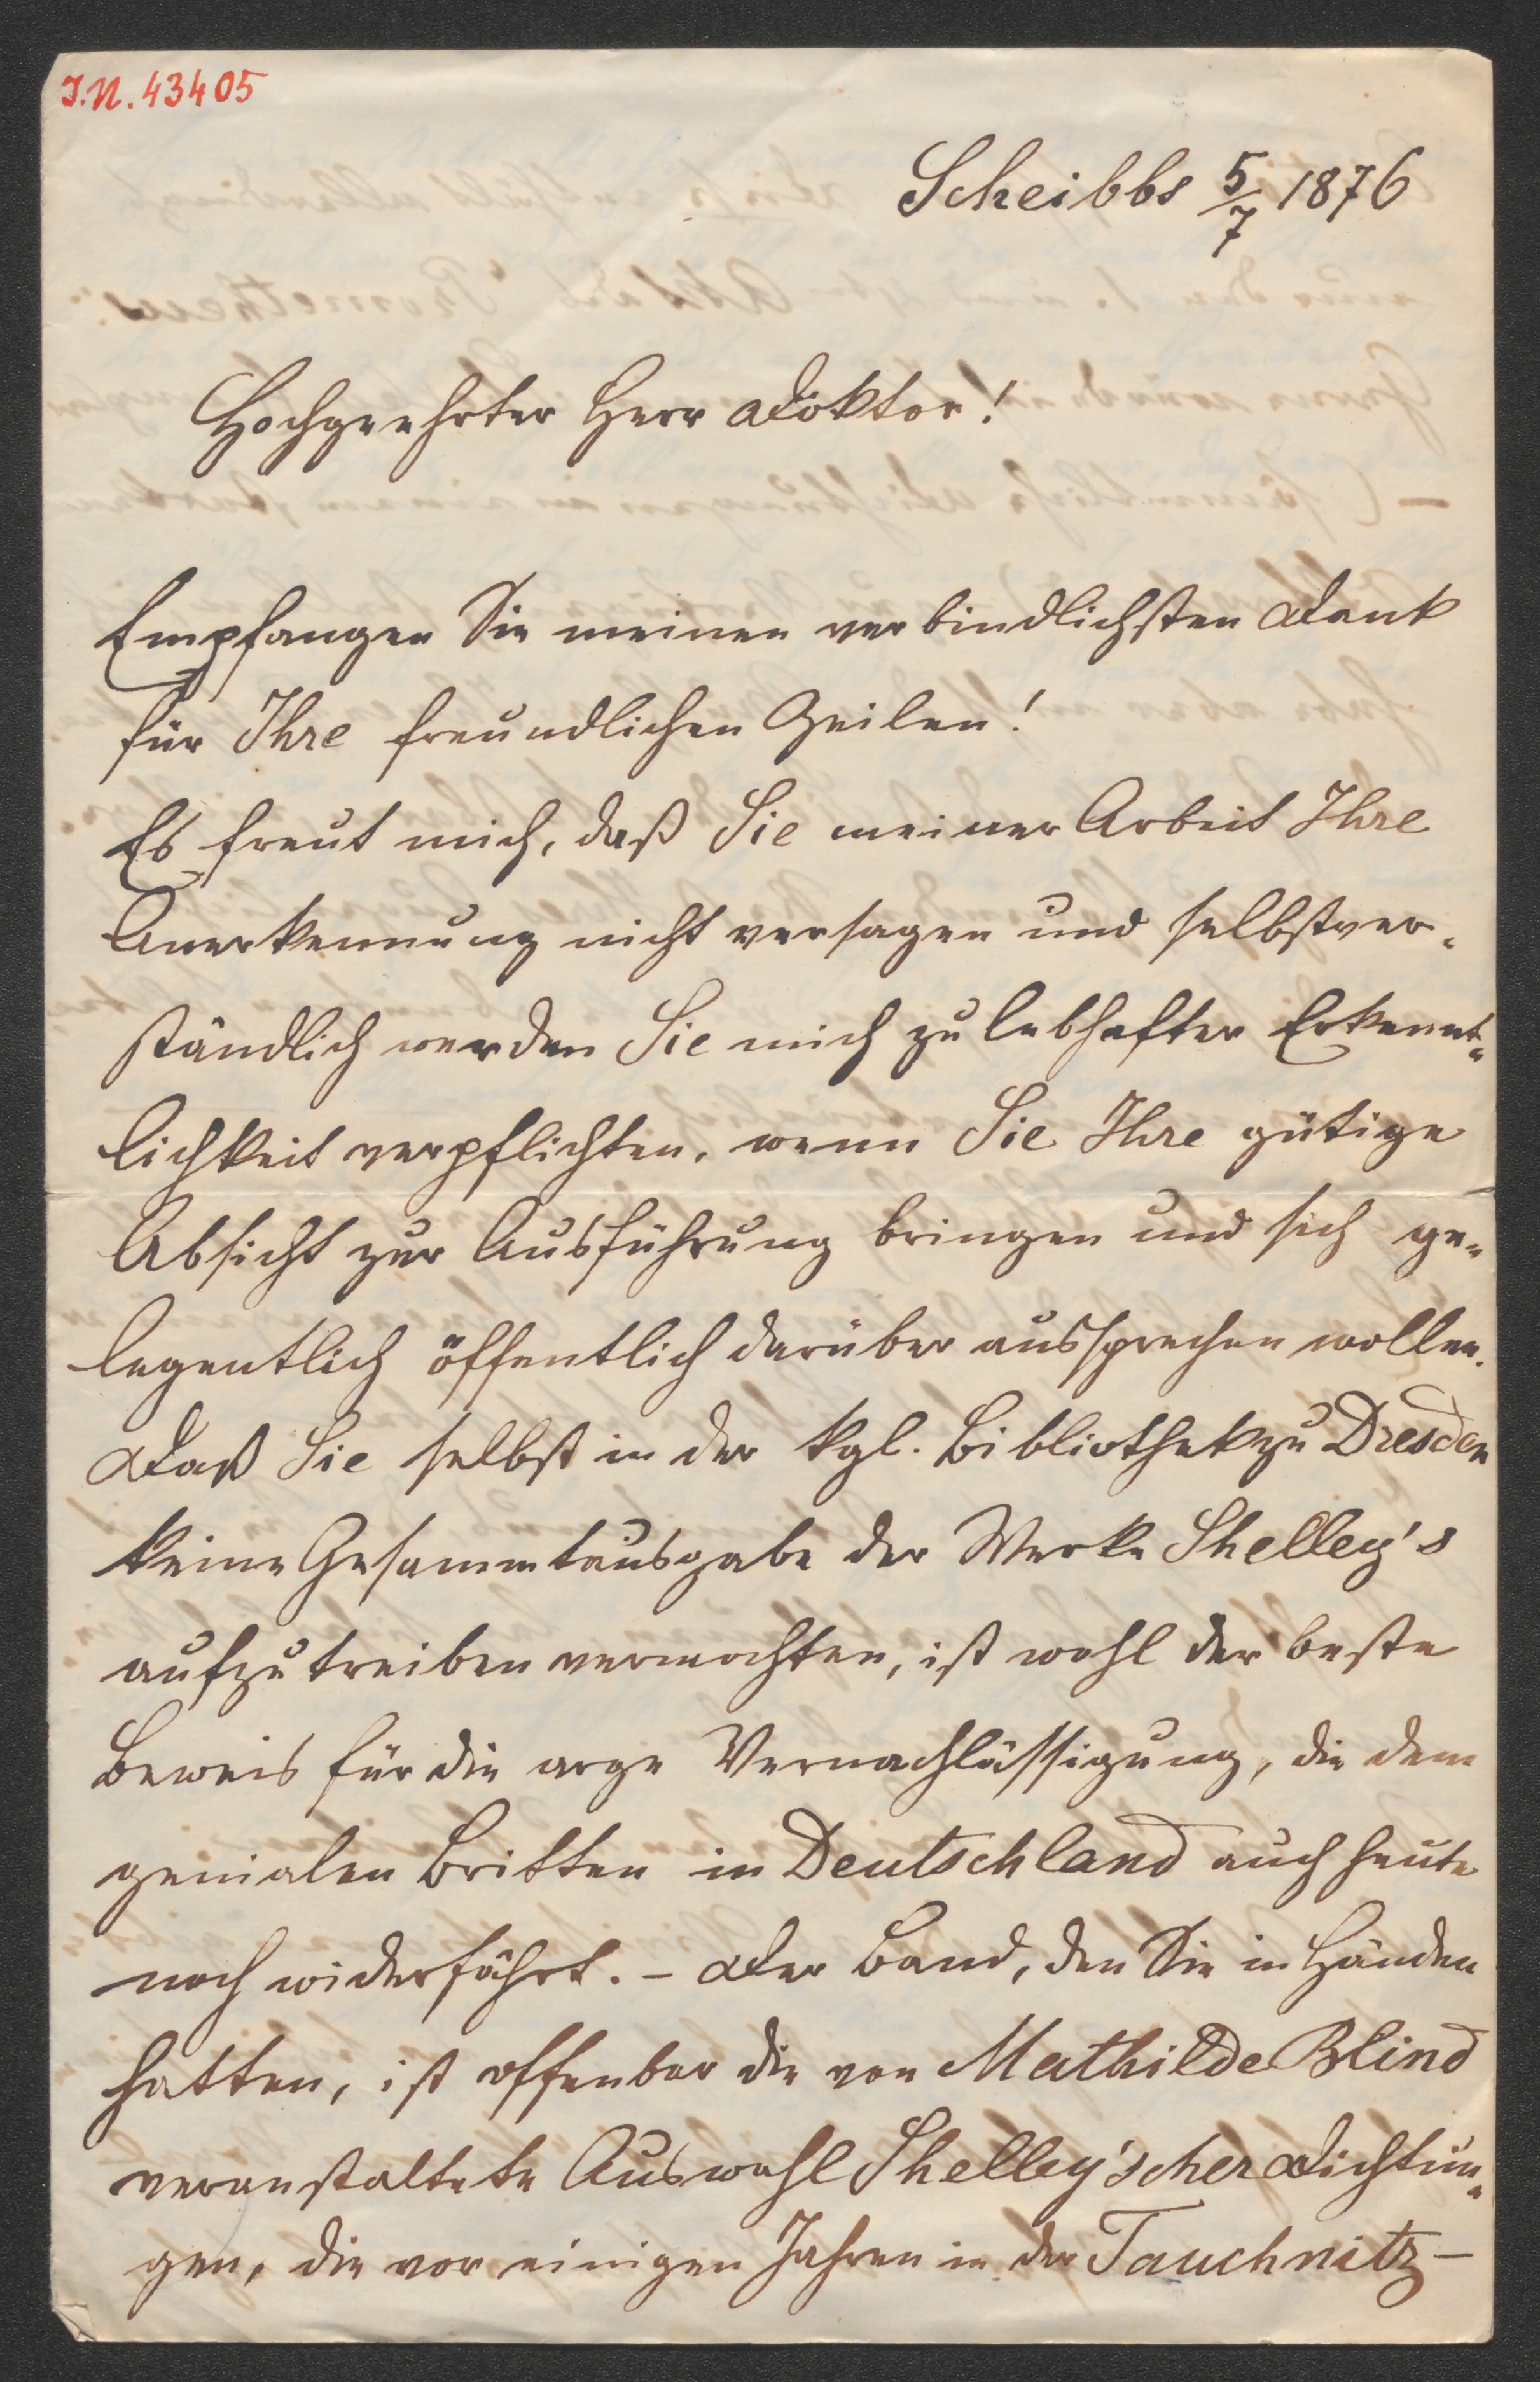 I.N. 43405
Scheibbs 5/7 1876
Hochgeehrter Herr Doktor!
Empfangen Sie meinen verbindlichsten Dank
für Ihre freundlichen Zeilen!
Es freut mich, daß Sie meiner Arbeit Ihre
Anerkennung nicht versagen und selbstver-
ständlich werden Sie mich zu lebhafter Erkennt-
lichkeit verpflichten, wenn Sie Ihre gütige
Absicht zur Ausführung bringen und sich ge-
legentlich öffentlich darüber aussprechen wollen.
Daß Sie selbst in der kgl. Bibliothek zu Dresden
keine Gesammtausgabe der Werke Shelley's
aufzutreiben vermochten, ist wohl der beste
Beweis für die arge Vernachlässigung, die dem
genialen Britten in Deutschland auch heute
noch widerfährt. – Der Band, den Sie in Händen
hatten, ist offenbar die von Mathilde Blind
veranstaltete Auswahl Shelley'scher Dichtun-
gen, die vor einigen Jahren in der Tauchnitz-